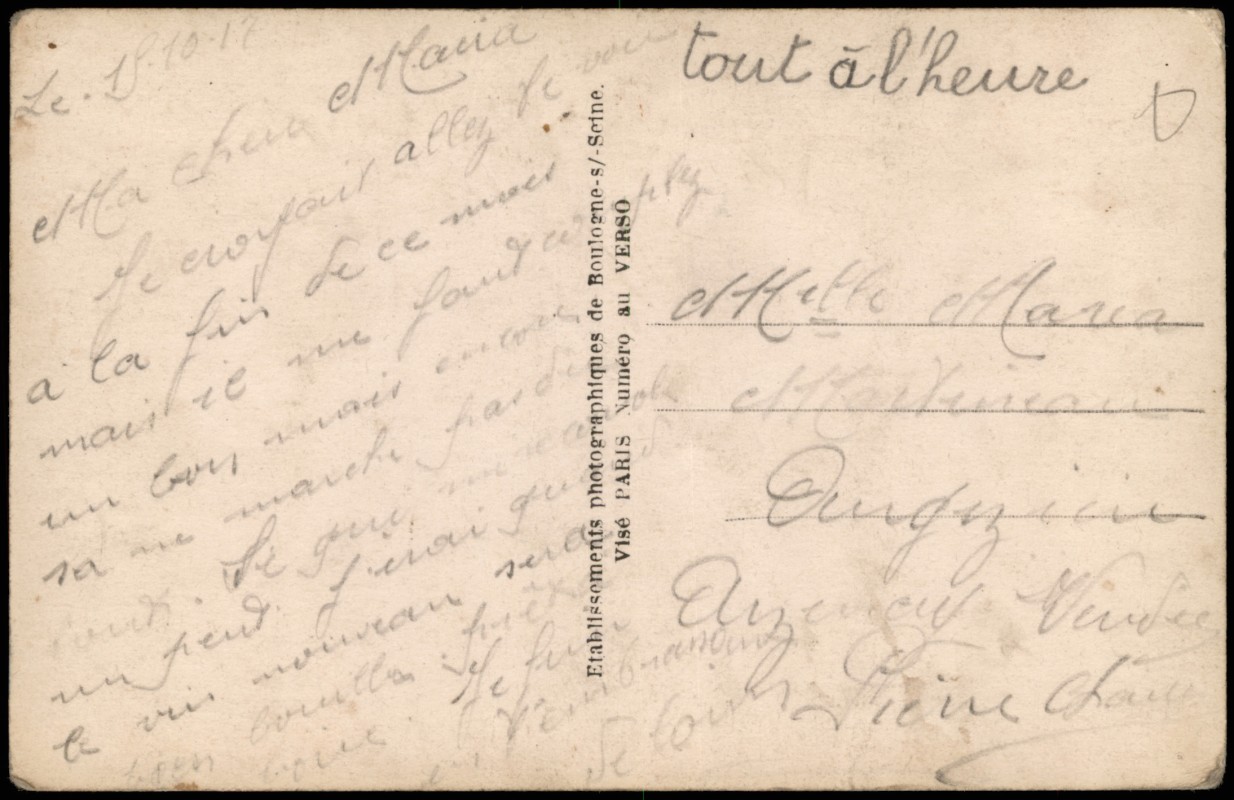 Le 15-10-17
Ma chere Maria
Je croyait allez te voir
à la fin de ce mois
mais il me faut compter
un bon mais encore
sa ne marche pas du
tout. Je
un peut j'irai quand
le vin nouveau sera
bon
boire Je
en t'embrassant
de loin
tout à l'heure
Etablissements photographiques de Boulogne-s/-Seine.
Visé PARIS Numéro au VERSO
Melle Maria
Martineau
Aizenay Vendée
Pierre